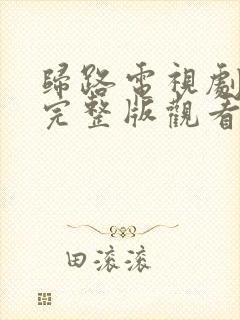 歸路電視劇
完整版觀看
田滚滚